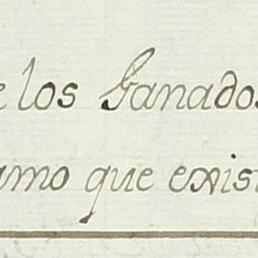 e los Ganados
amo que exist